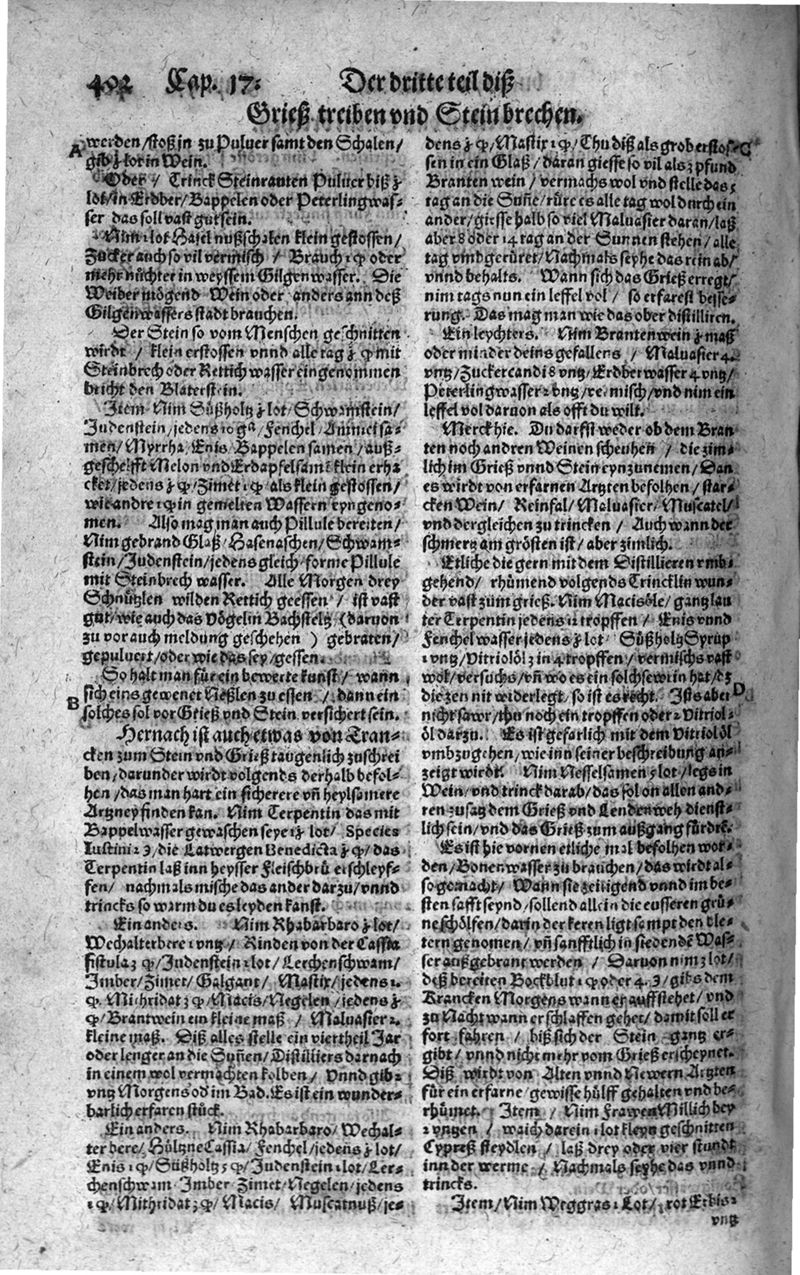 402 Cap. 17. Der dritte teil diß
Grieß treiben vnd Stein brechen.
A
werden/stoß in zu Puluer samt den Schalen/
gib ʒ lot in Wein.
Oder/ Trinck Steinrauten Puluer biß ʒ
lot/in Erdber/Bappelen oder Peterlingwas-
ser das soll vast gut sein.
Nim 1 lot Hasel nußschalen klein gestossen/
Zucker auch so vil vermisch / Brauch 1 q oder
mehr nüchter in weyssem Gilgen wasser. Die
Weiber mögend Wein oder anders ann deß
Gilgenwassers stadt brauchen.
Der Stein so vom Menschen geschnitten
wirdt / klein erstossen vnnd alle tag ʒ q mit
Steinbrech oder Rettich wasser eingenommen
bricht den Blaterstein.
Item Nim Süßholtz ʒ lot/ Schwamstein/
Judenstein/jedens 10 gᵃ/ Fenchel/Ammei sa-
men/Myrrha/Enis/Bappelen samen/auß-
geschelfft Melon vnd Erdapfelsamẽ klein erha
cket/jedens ʒ q/Zimet 1 q als klein gestossen/
wie andre 1 q in gemelten Wassern eyngeno-
men. Also mag man auch Pillule bereiten/
Nim gebrand Glaß/Hasenaschen/Schwam-
stein/Judenstein/jedens gleich/forme Pillule
mit Steinbrech wasser. Alle Morgen drey
Schnützlen wilden Rettich geessen / ist vast
gůt/wie auch das Vögelin Bachsteltz (daruon
zu vor auch meldung geschehen ) gebraten/
gepuluert/oder wie das sey/gessen.
So halt man für ein bewerte kunst/ wann
B
sich eins gewenet Neßlen zu essen / dann ein
solches sol vor Grieß vnd Stein versichert sein.
Hernach ist auch etwas von Tran-
cken zum Stein vnd Grieß taugenlich zuschrei
ben/darunder wirdt volgends derhalb befol-
hen/das man hart ein sicherere vñ heylsamere
Artzney finden kan. Nim Terpentin das mit
Bappelwasser gewaschen seye 1 ʒ lot/ Species
Iustini 2 3, die Latwergen Benedicta ʒ q/das
Terpentin laß inn heysser Fleischbrü erschleyf-
fen/ nachmals mische das ander darzu/vnnd
trincks so warm du es leyden kanst.
Ein anders. Nim Rhabarbaro ʒ lot/
Wechalterbere 1 vntz/ Rinden von der Cassia
fistula 2 q/Judenstein 1 lot/ Lerchenschwam/
Imber/Zimet/Galgant/ Mastix/jedens 1
q, Mithridat 2 q/Macis/Negelen/jedens ʒ
q/Brantwein ein kleine maß / Maluasier 2.
kleine maß. Diß alles stelle ein viertheil Jar
oder lenger an die Sunen/Distilliers darnach
in einem wol vermachten kolben/ Vnnd gib 2
vntz Morgens od im Bad. Es ist ein wunder-
barlich erfaren stück.
Ein anders. Nim Rhabarbaro/Wechal-
terbere/Hültzne Cassia/Fenchel/jedens ʒ lot/
Enis 1 q/Süßholtz 3 q/Judenstein 1 lot/Ler-
chenschwam Imber Zimet/Negelen/jedens
1 q/Mithridat 3 q/Macis/ Muscatnuß/je-
dens ʒ q/Mastix 1 q/ Thu diß als grob erstos-
C
sen in ein Glaß/daran giesse so vil als 2 pfund
Branten wein / vermachs wol vnd stelle das 3
tag an die Suñe/rüre es alle tag wol durch ein
ander/giesse halb so viel Maluasier daran/laß
aber 8 oder 14 tag an der Sunnen stehen/alle
tag vmbgerüret/Nachmals seyhe das rein ab/
vnnd behalts. Wann sich das Grieß erregt/
nim tags nun ein leffel vol/ so erfarest besse-
rung. Das mag man wie das ober distilliren.
Ein leychters. Nim Brantenwein ʒ maß
oder minder deins gefallens/ Maluasier 4.
vntz/Zuckercandi 8 vntz/Erdberwasser 4 vntz/
Peterlingwasser 2 vntz/vermisch/vnd nim ein
leffel vol daruon als offt du wilt.
Merck hie. Du darfst weder ob dem Bran
ten noch andren Weinen scheuhen / die zim-
lich im Grieß vnnd Stein eynzunemen/ Dan
es wirdt von erfarnen Artzten befolhen/star-
cken Wein/ Reinfal/Maluasier/Muscatel/
vnd dergleichen zu trincken / Auch wann der
schmertz am grösten ist/aber zimlich.
Etliche die gern mit dem Distillieren vmb-
gehend/ rhümend volgends Trincklin wun-
der vast zum grieß. Nim Macisöle/ gantz lau
ter Terpentin jedens 12 tropffen / Enis vnnd
Fenchel wasser jedens ʒ lot Süßholtz Syrup
1 vntz/Vitriolöl 3 in 4 tropffen/ vermischs vast
wol/versuchs/vñ wo es ein solchsewrin hat/dz
die zen nit widerlegt/so ist es recht. Ists aber
D
nicht sawr/thu noch ein tropffen oder 2 Vitriol
öl darzu. Es ist gefarlich mit dem Vitriolöl
vmbzugehen/wie inn seiner beschreibung an-
zeigt wirdt. Nim Nesselsamen ʒ lot/legs in
Wein/vnd trinck darab/das sol on allen and-
ren zusatz dem Grieß vnd Lendenweh dienst-
lich sein/vnd das Grieß zum außgang fürdre.
Es ist hie vornen etliche mal befolhen wor-
den/Bonen wasser zu brauchen/das wirdt al-
so gemacht/ Wann sie zeitigend vnnd im be-
sten safft seynd/sollend allein die eusseren grü-
ne schölfen/darin der keren ligt sampt den ble-
tern genomen/vñ sanfftlich in siedendẽ Was-
ser außgebrant werden / Daruon nim 2 lot/
deß bereiten Bockblut 1 q oder 4. 3/gibs dem
Krancken Morgens wann er auffstehet/vnd
zu Nacht wann er schlaffen gehet/damit soll er
fort fahren / biß sich der Stein gantz er-
gibt/ vnnd nicht mehr vom Grieß erscheynet.
Diß wirdt von Alten vnnd Newern Artzten
für ein erfarne/gewisse hülff gehalten vnd be-
rhümet. Item / Nim Frawen Millich bey
2 vntzen / waich darein 1 lot kleyn geschnitten
Cypreß steydlen / laß drey oder vier stundt
inn der werme / Nachmals seyhe das vnnd
trincks.
Item/Nim Weggras 1 Lot/ rot Erbis 2
vntz